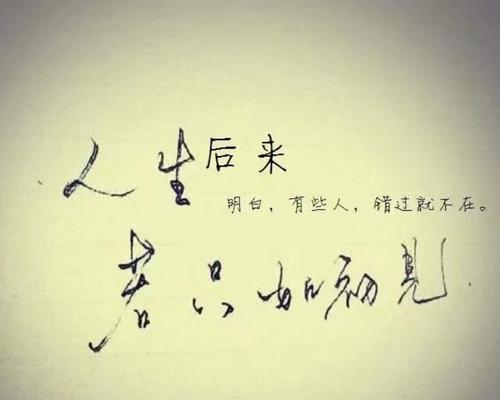 人生后来
明白，有些人，错过就不在。
若只如初見